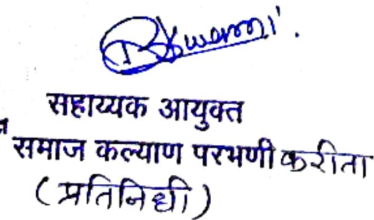 सहाय्यक आयुक्त
समाज कल्याण परभणी करीता
( प्रतिनिधी )